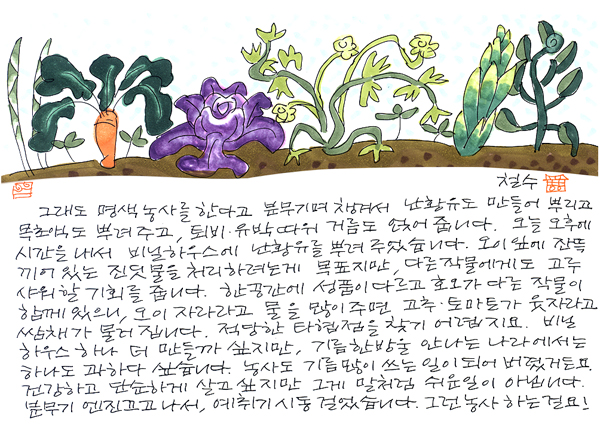 철수
그래도 명색 농사를 한다고 분무기며 챙겨서 난황유도 만들어 뿌리고
목초액도 뿌려주고, 퇴비·유박 따위 거름도 얹어 줍니다. 오늘 오후에
시간을 내서 비닐하우스에 난황유를 뿌려 주었습니다. 오이 잎에 잔뜩
끼어 있는 진딧물을 처리하려는게 목표지만, 다른 작물에게도 고루
샤워할 기회를 줍니다. 한 공간에 성품이 다르고 효모가 다른 작물이
함께 있으니, 오이 자라라고 물을 많이 주면 고추·토마토가 웃자라고
쌈채가 물러집니다. 적당한 타협점을 찾기 어렵지요. 비닐
하우스 하나 더 만들까 싶지만, 기름 한방울 안나는 나라에서는
하나도 과하다 싶습니다. 농사도 기름 많이 쓰는 일이 되어 버렸거든요.
건강하고 단순하게 살고 싶지만 그게 말처럼 쉬운일이 아닙니다.
분무기 엔진끄고 나서, 예취기 시동 걸었습니다. 그런 농사 하는걸요!